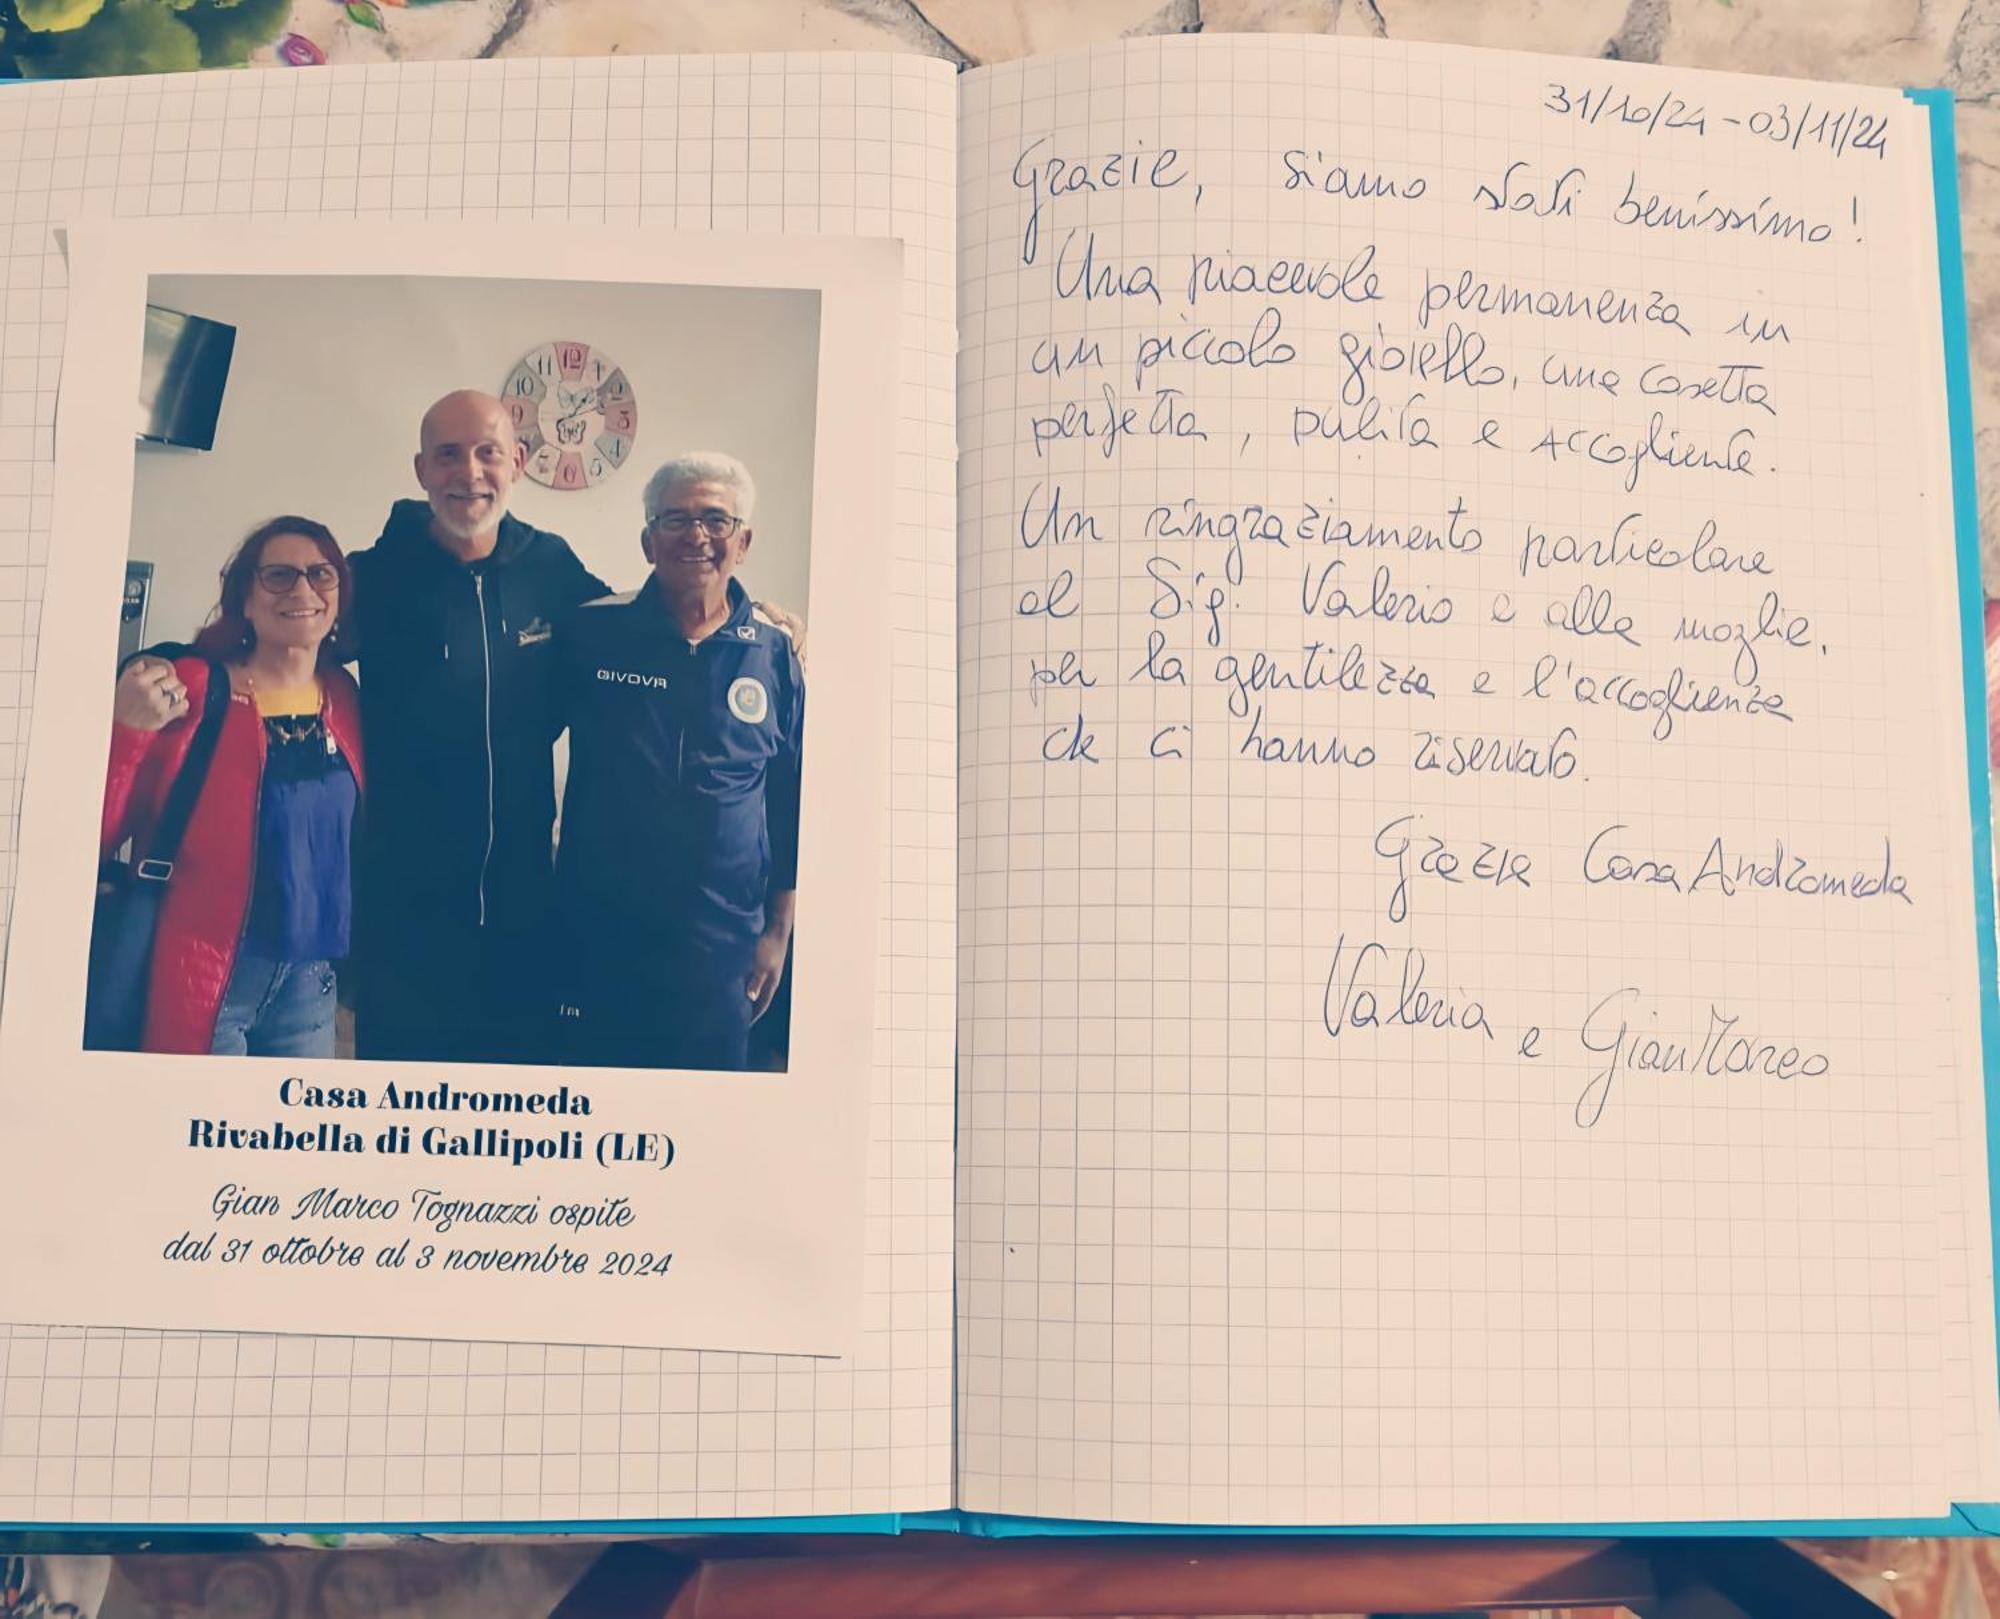 11 12 1 2
10 3
9 4
7 6 5
GIVOVA
Casa Andromeda
Rivabella di Gallipoli (LE)
Gian Marco Tognazzi ospite
dal 31 ottobre al 3 novembre 2024
31/10/24 - 03/11/24
Grazie, siamo stati benissimo!
Una piacevole permanenza in
un piccolo gioiello, una casetta
perfetta, pulita e accogliente.
Un ringraziamento particolare
al Sig. Valerio e alla moglie,
per la gentilezza e l'accoglienza
che ci hanno riservato.
Grazie Casa Andromeda
Valeria e GianMarco